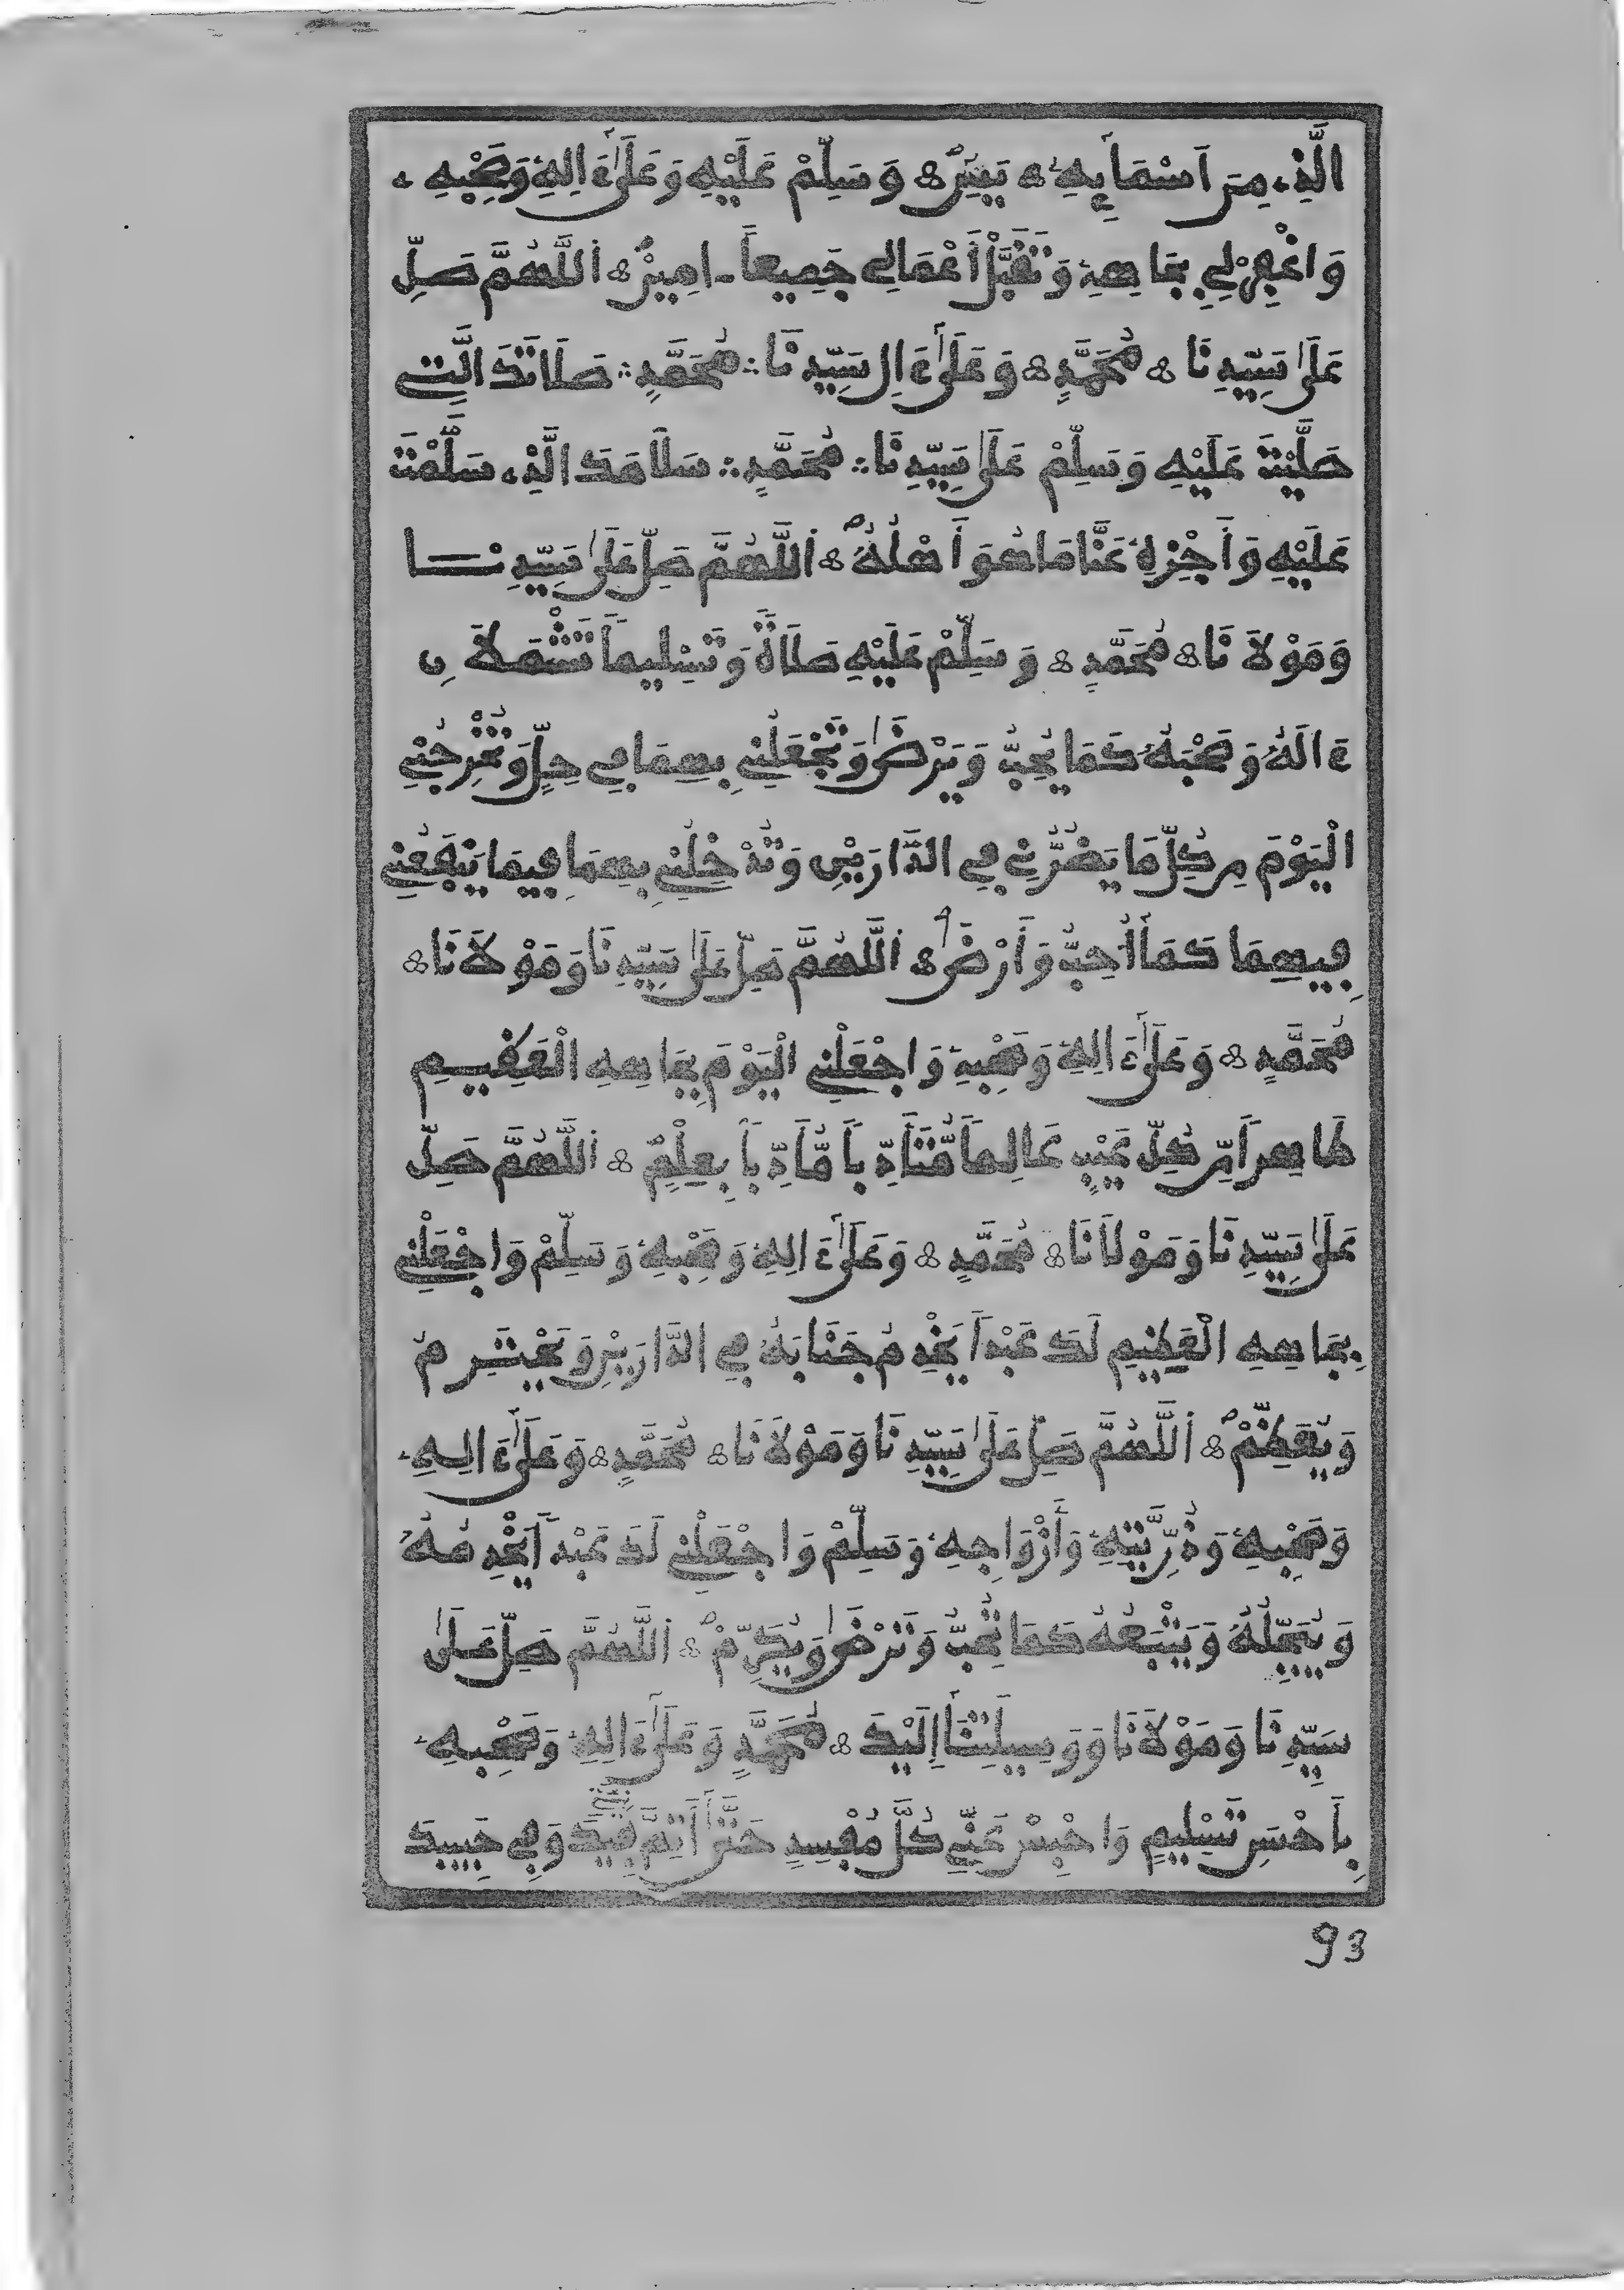 الَّذِے مِنَ اَسْمَآئِهِۦ ۞ يَسٓ ۞ وَسَلِّمْ عَلَيْهِ وَعَلَىٰٓ ءَالِهِۦ وَصَحْبِهِۦ
وَاغْفِرْ لِي بِجَاهِهِۦ وَتَقَبَّلْ أَعْمَالِي جَمِيعاً ـ امِينْ ۞ اَللَّهُمَّ صَلِّ
عَلَىٰ سَيِّدِنَا ۞ مُحَمَّدٍ ۞ وَعَلَىٰٓ ءَالِ سَيِّدِنَا ∴ مُحَمَّدٍ ∴ صَلَاتَكَ الَّتِي
صَلَّيْتَ عَلَيْهِ وَسَلِّمْ عَلَىٰ سَيِّدِنَا ∴ مُحَمَّدٍ ∴ سَلَامَكَ الَّذِے سَلَّمْتَ
عَلَيْهِ وَأَجْزِهِۦ عَنَّا مَا هُوَ أَهْلُهُۥ ۞ اَللَّهُمَّ صَلِّ عَلَىٰ سَيِّدِنَا
وَمَوْلَانَا ۞ مُحَمَّدٍ ۞ وَسَلِّمْ عَلَيْهِ صَلَاةً وَتَسْلِيماً تَشْمَلَانِ
ءَالَهُۥ وَصَحْبَهُۥ كَمَا يُحِبُّ وَيَرْضَىٰ وَتَجْعَلُنِي بِهِمَا فِي حِلٍّ وَتُخْرِجُنِي
الْيَوْمَ مِن كُلِّ مَا يَضُرُّنِي فِي الدَّارَيْنِ وَتُدْخِلُنِي بِهِمَا فِيمَا يَنْفَعُنِي
فِيهِمَا كَمَا أُحِبُّ وَأَرْضَىٰ ۞ اَللَّهُمَّ صَلِّ عَلَىٰ سَيِّدِنَا وَمَوْلَانَا ۞
مُحَمَّدٍ ۞ وَعَلَىٰٓ ءَالِهِۦ وَصَحْبِهِۦ وَاجْعَلْنِي الْيَوْمَ بِجَاهِهِ الْعَظِيمِ
طَاهِراً مِّن كُلِّ عَيْبٍ عَالِماً مُّتَأَدِّباً مُّأَدِّباً بِعِلْمٍ ۞ اَللَّهُمَّ صَلِّ
عَلَىٰ سَيِّدِنَا وَمَوْلَانَا ۞ مُحَمَّدٍ ۞ وَعَلَىٰٓ ءَالِهِۦ وَصَحْبِهِۦ وَسَلِّمْ وَاجْعَلْنِي
بِجَاهِهِ الْعَظِيمِ لَكَ عَبْداً يَخْدِمُ جَنَابَهُۥ فِي الدَّارَيْنِ وَيَحْتَرِمُ
وَيُعَظِّمْ ۞ اَللَّهُمَّ صَلِّ عَلَىٰ سَيِّدِنَا وَمَوْلَانَا ۞ مُحَمَّدٍ ۞ وَعَلَىٰٓ ءَالِهِۦ
وَصَحْبِهِۦ وَذُرِّيَّتِهِۦ وَأَزْوَاجِهِۦ وَسَلِّمْ وَاجْعَلْنِي لَكَ عَبْداً يَخْدِمُهُۥ
وَيُبَجِّلُهُۥ وَيَتْبَعُهُۥ كَمَا تُحِبُّ وَتَرْضَىٰ وَيُكَرِّمْ ۞ اَللَّهُمَّ صَلِّ عَلَىٰ
سَيِّدِنَا وَمَوْلَانَا وَوَسِيلَتِنَا إِلَيْكَ ۞ مُحَمَّدٍ وَعَلَىٰٓ ءَالِهِۦ وَصَحْبِهِۦ
بِأَحْسَنِ تَسْلِيمٍ وَاحْبِسْ عَنِّي كُلَّ مُفْسِدٍ حَتَّىٰٓ فِيكَ وَفِي حَبِيبِكَ
93